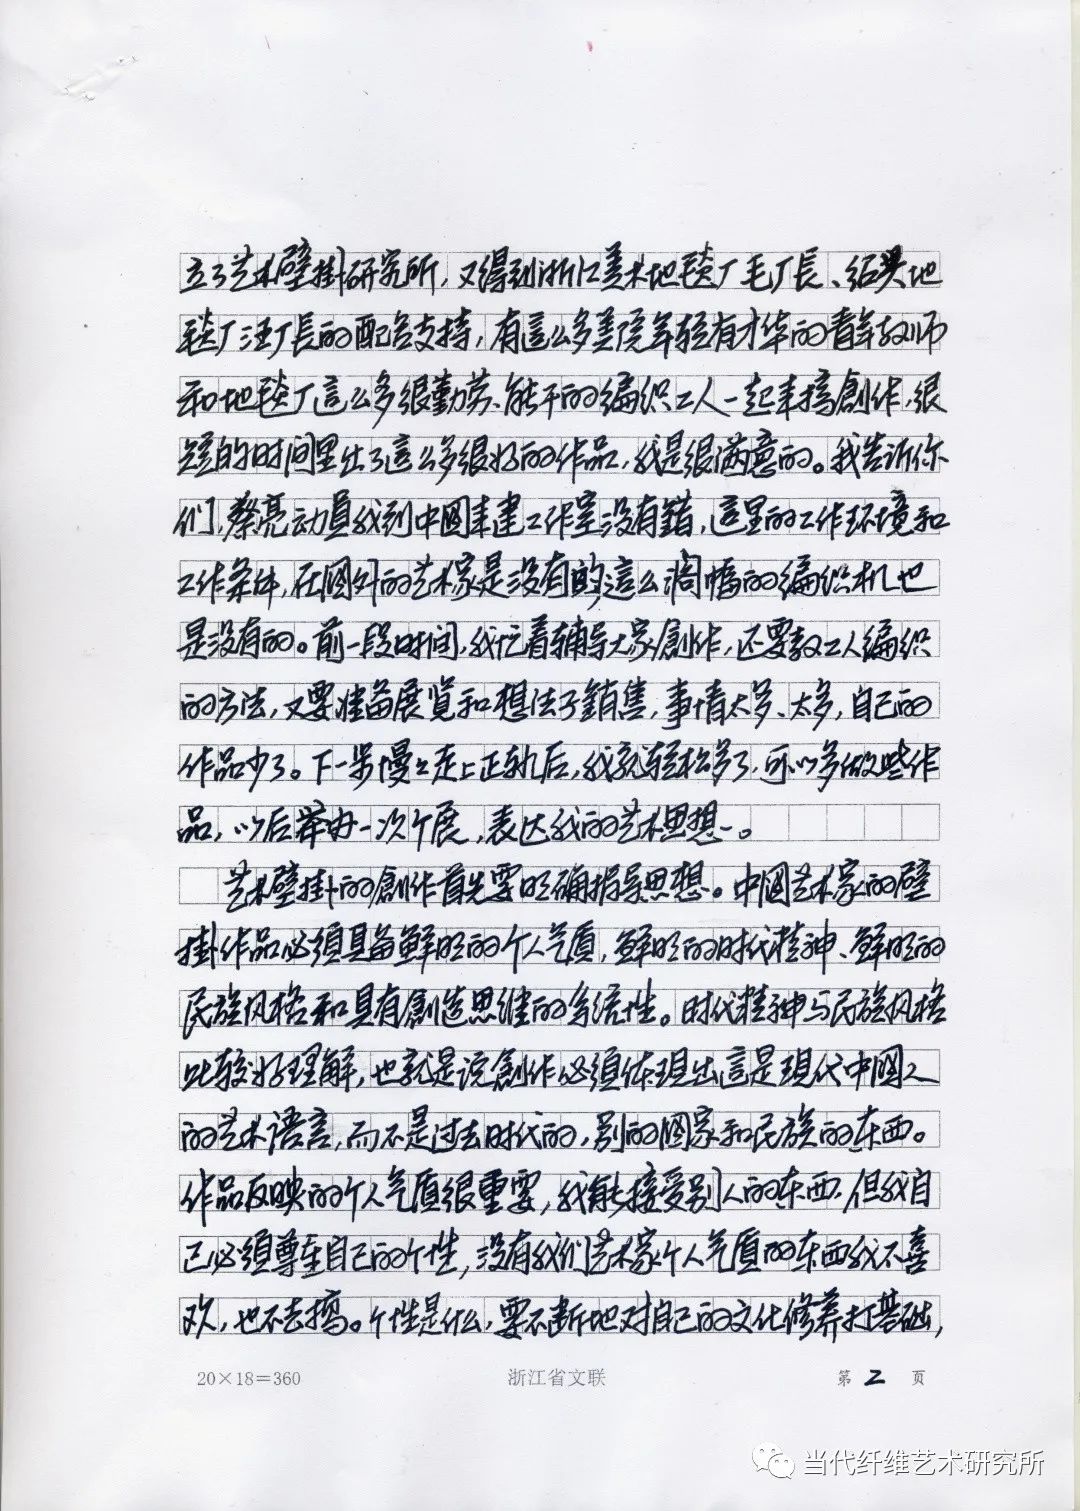 立了艺术壁掛研究所，又得到浙江美术地毯厂毛厂長、绍兴地
毯厂汪厂長的配合支持，有這么多美院年轻有才华的青年教师
和地毯厂這么多很勤劳、能干的编织工人一起来搞創作，很
短的时间里出了這么多很好的作品，我是很满意的。我告诉你
们，蔡亮动員我到中國来建工作室没有錯，這里的工作环境和
工作条件，在國外的艺术家是没有的，這么阔幅的编织机也
是没有的。前一段时间，我忙着辅导大家創作，还要教工人编织
的方法，又要准备展览和想法子銷售，事情太多、太多，自己的
作品少了。下一步慢々走上正轨后，我就轻松多了，可以多做些作
品，以后举办一次个展，表达我的艺术思想。
艺术壁掛的創作首先要明确指导思想。中國艺术家的壁
掛作品必须具备鲜明的个人气质，鲜明的时代精神、鲜明的
民族风格和具有創造思维的系统性。时代精神与民族风格
比较好理解，也就是说創作必须体现出這是現代中國人
的艺术语言，而不是过去时代的，别的國家和民族的东西。
作品反映的个人气质很重要，我能接受别人的东西，但我自
己必须尊重自己的个性，没有我们艺术家个人气质的东西我不喜
欢，也不去搞。个性是什么，要不断地对自己的文化修养打基础，
20×18=360 浙江省文联 第 2 页
当代纤维艺术研究所